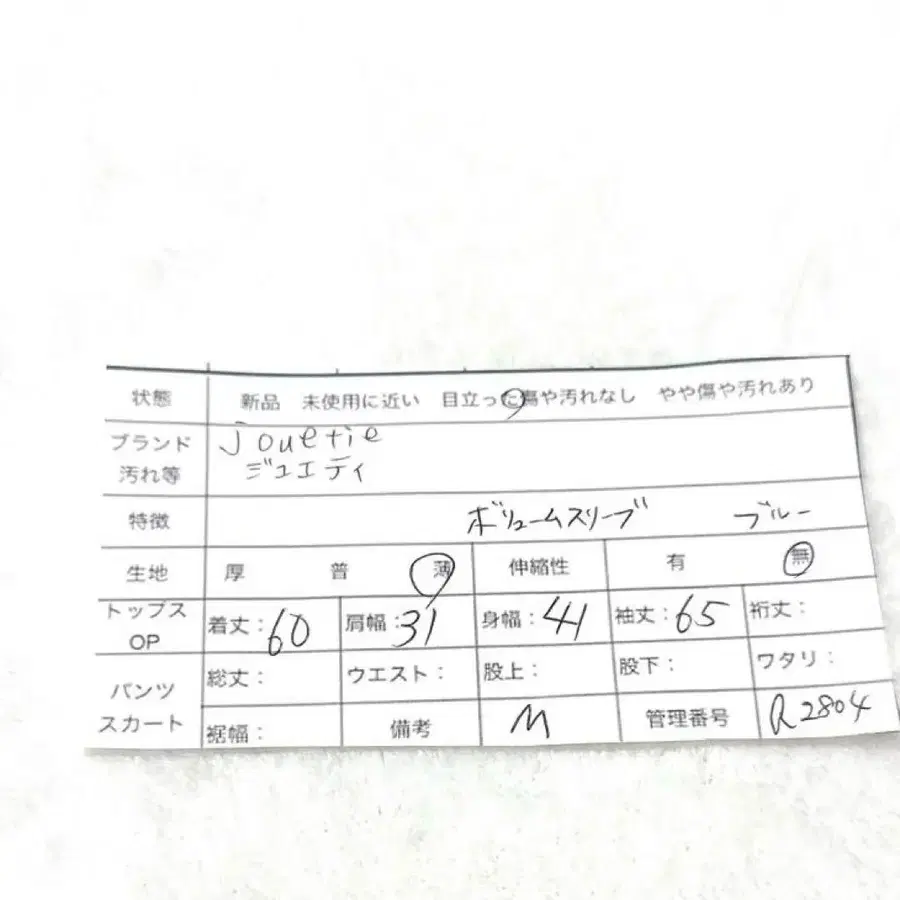 状態 新品 未使用に近い 目立った傷や汚れなし やや傷や汚れあり
ブランド jouetie
汚れ等 ジュエティ
特徴 ボリュームスリーブ ブルー
生地 厚 普 薄 伸縮性 有 無
トップス OP 着丈：60 肩幅：31 身幅：41 袖丈：65 裄丈：
パンツ 総丈： ウエスト： 股上： 股下： ワタリ：
スカート 裾幅： 備考 M 管理番号 R2804